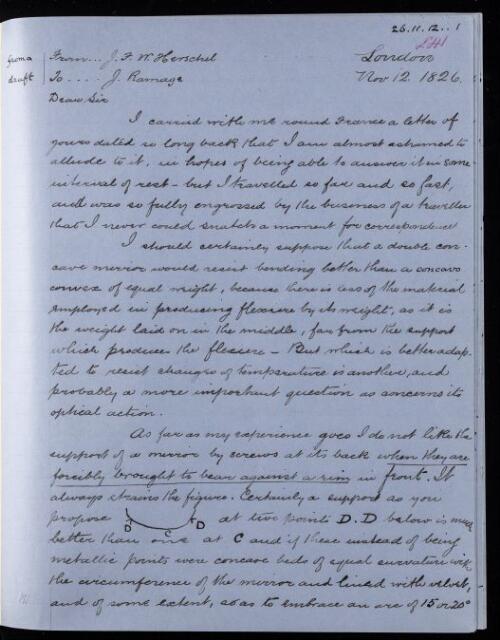 26.11.12..1
L41
from a From... J. F. W. Herschel London
draft To.... J. Ramage Nov 12. 1826.
Dear Sir
I carried with me round France a letter of
yours dated so long back that I am almost ashamed to
allude to it, in hopes of being able to answer it in some
interval of rest – but I travelled so far and so fast,
and was so fully engrossed by the business of a traveller
that I never could snatch a moment for correspondence
I should certainly suppose that a double con-
cave mirror would resist bending better than a concavo
convex of equal weight, because there is less of the material
employed in producing flexure by its weight, as it is
the weight laid on in the middle, far from the support
which produces the flexure – But which is better adap-
ted to resist changes of temperature is another, and
probably a more important question as concerns its
optical action.
As far as my experience goes I do not like the
support of a mirror by screws at its back when they are
forcibly brought to bear against a rim in front. It
always strains the figure. Certainly a support as you
propose D C D at two points D.D below is much
better than one at C and if these instead of being
metallic points were concave beds of equal curvature with
the circumference of the mirror and lined with velvet,
and of some extent, so as to embrace an arc of 15 or 20°